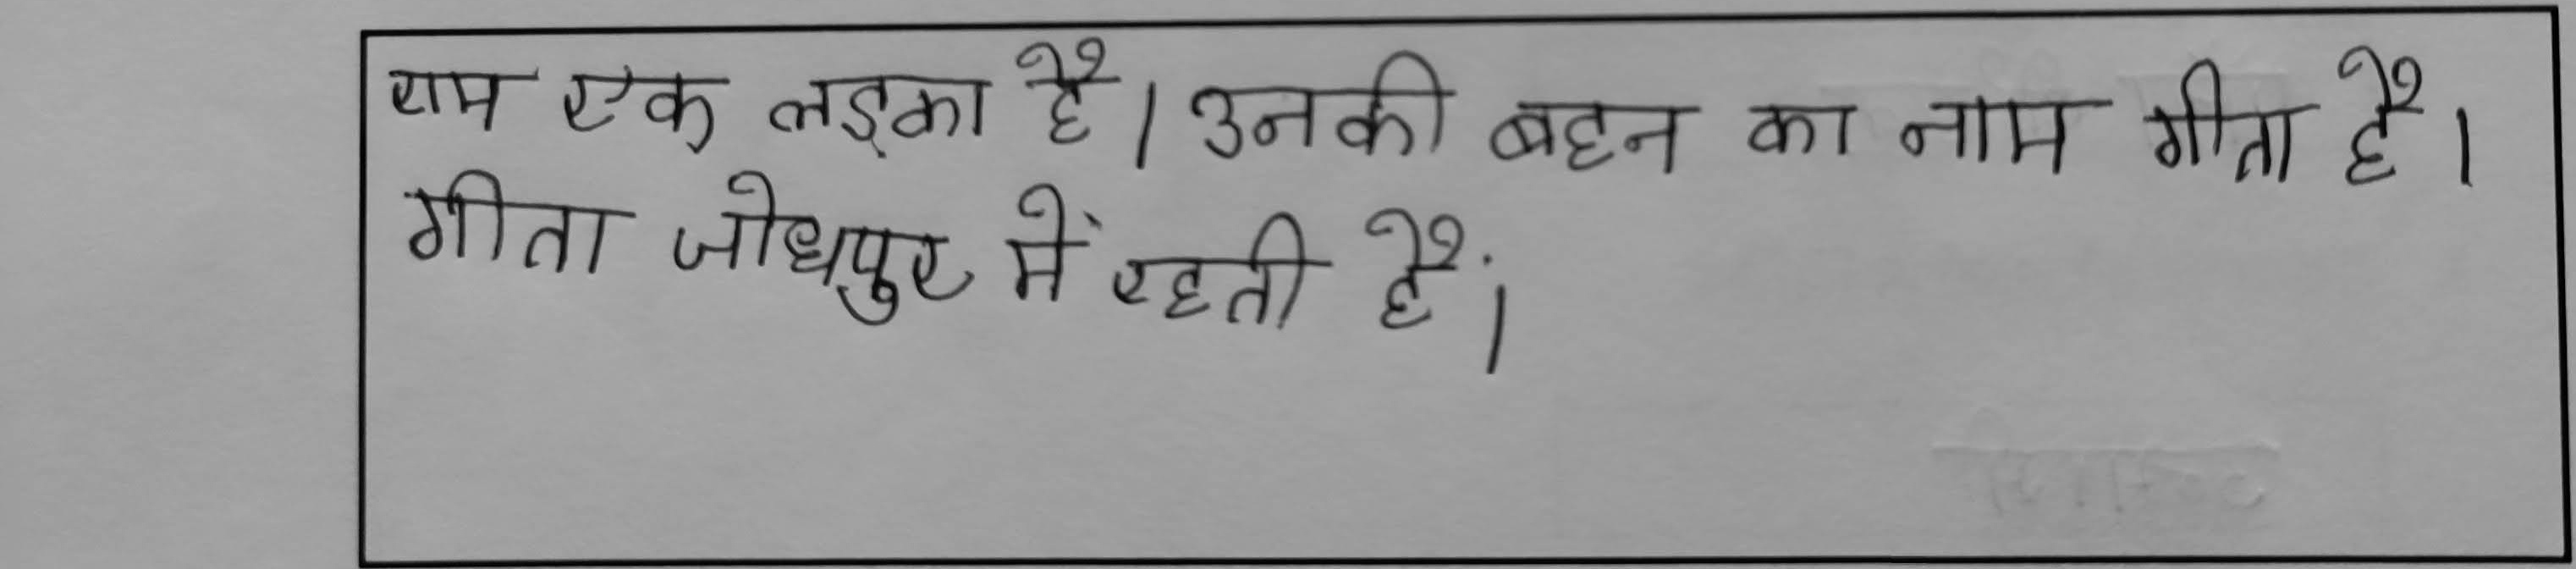 राम एक लड़का है। उनकी बहन का नाम गीता है।
गीता जोधपुर में रहती हैं।